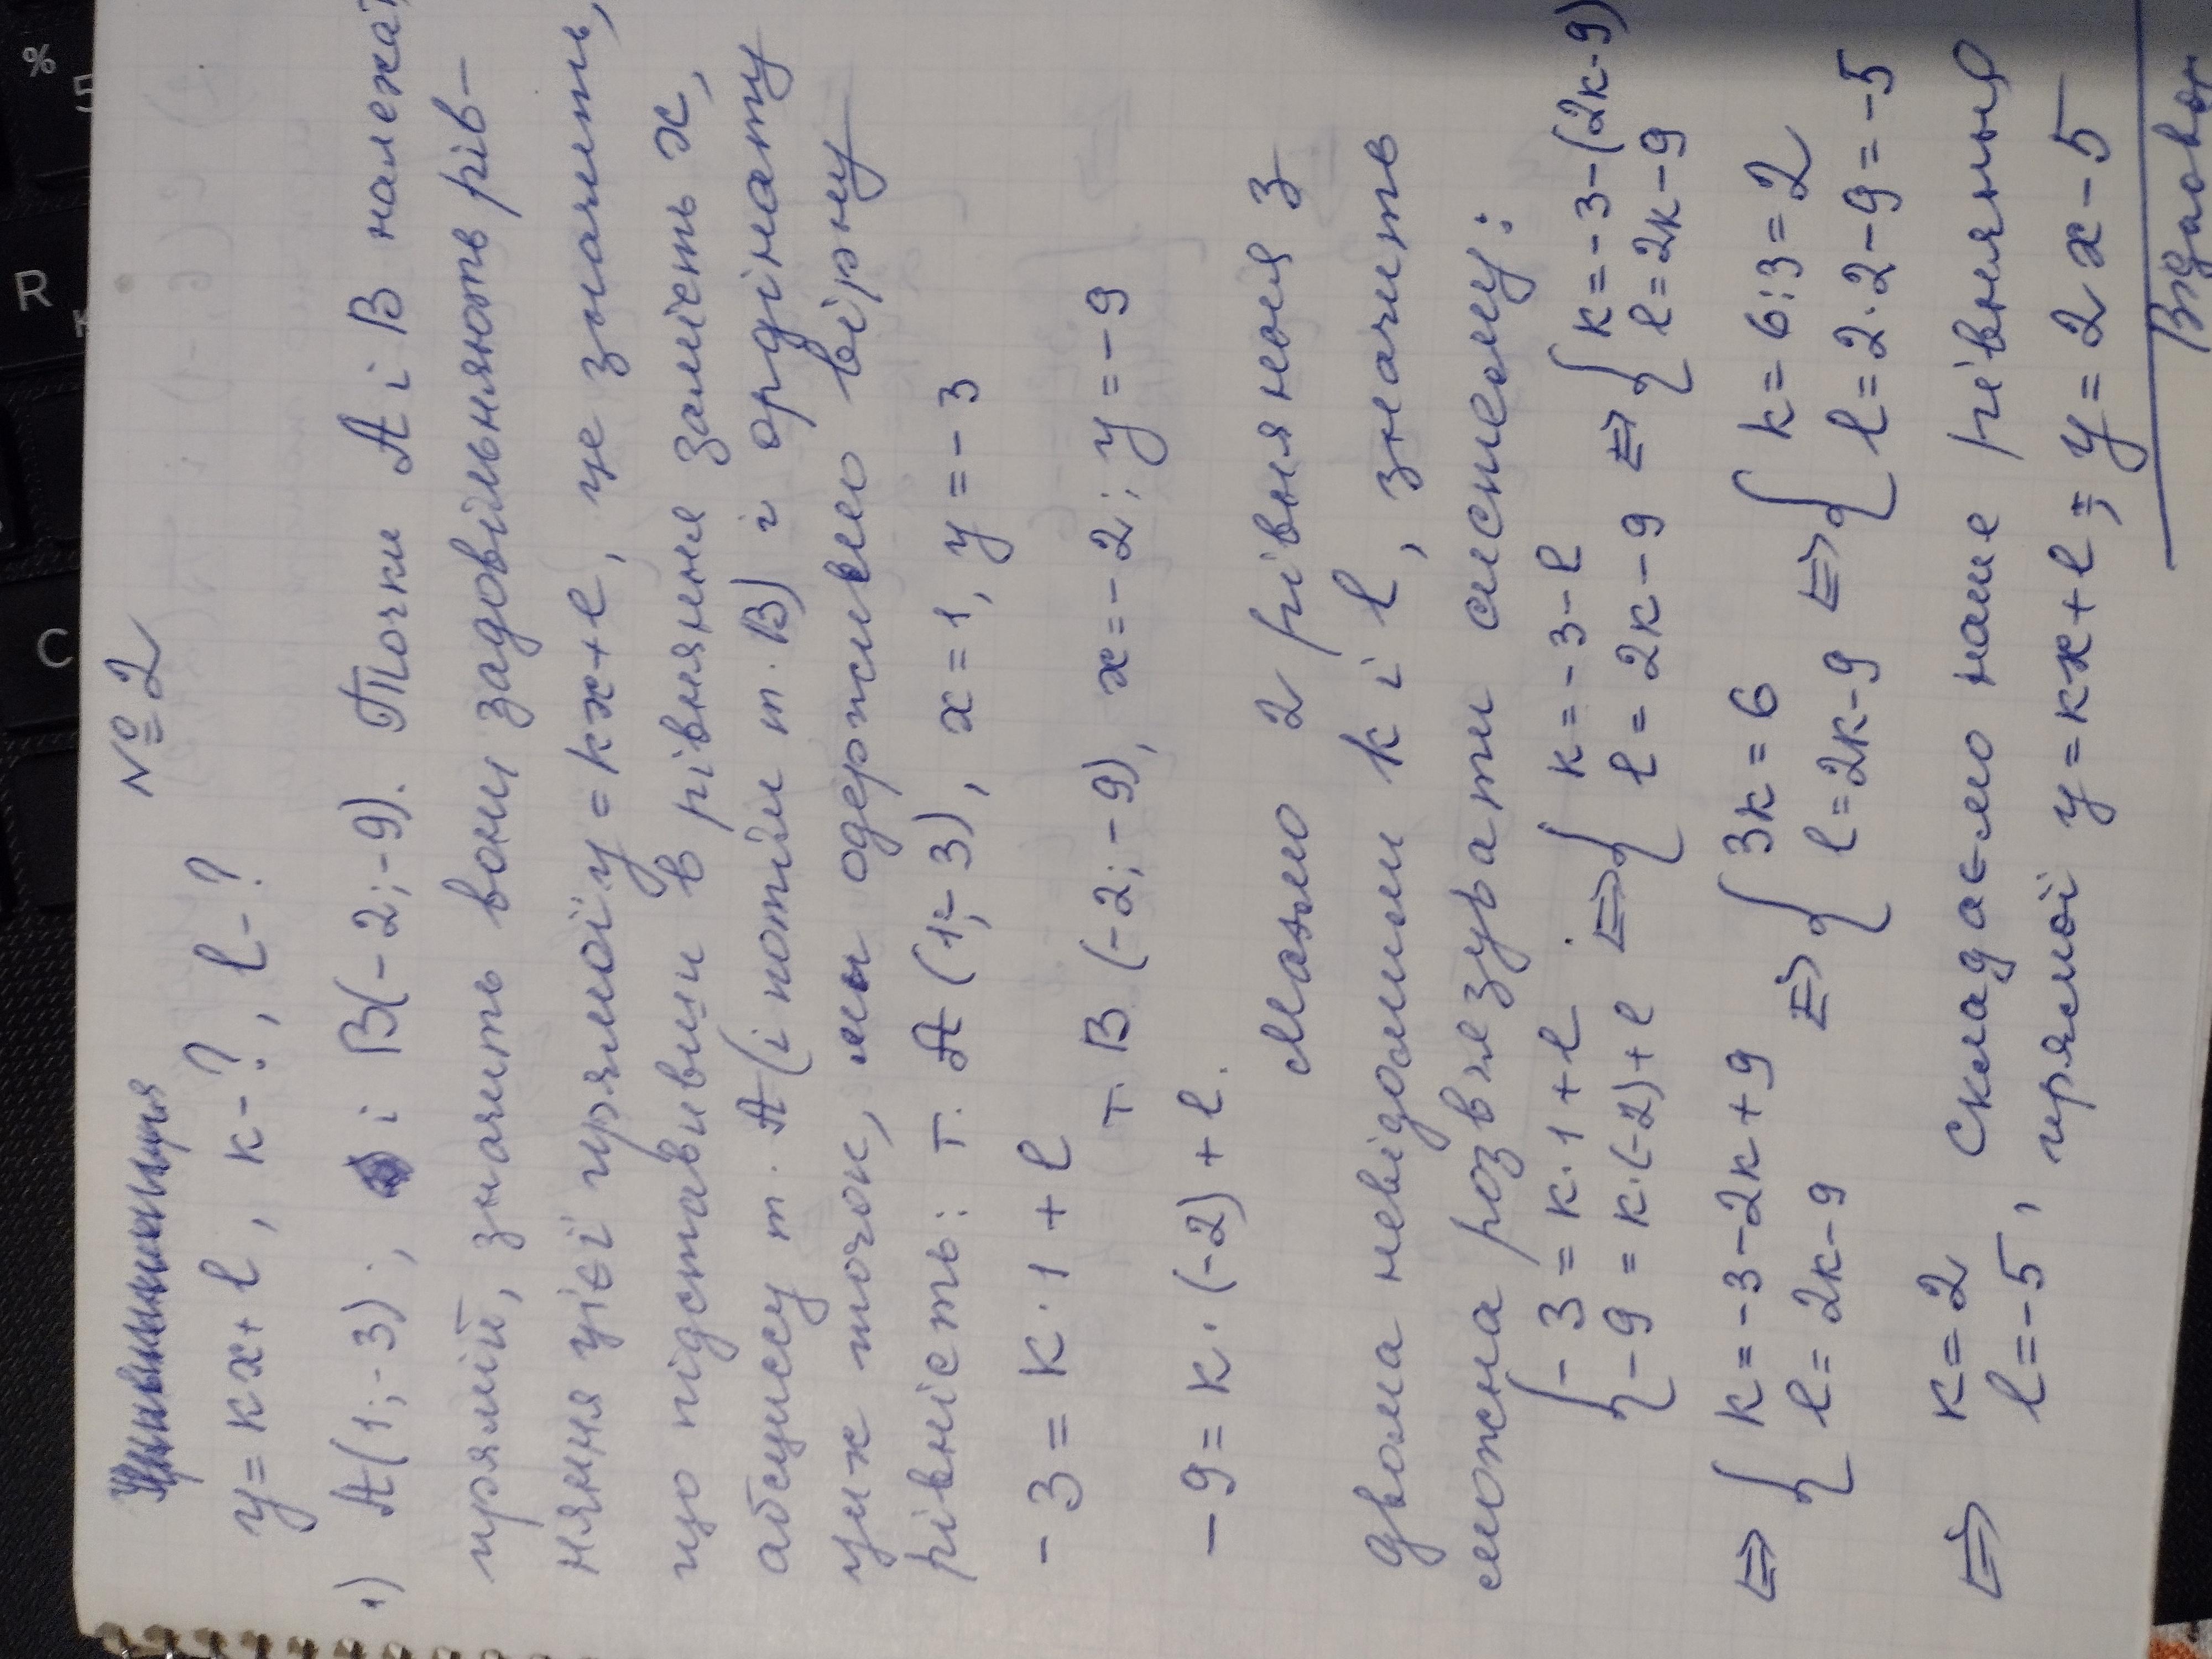 №2
y = kx + l, k - ?, l - ?
1) A(1; -3); і B(-2; -9). Точки А і В належат
прямій, значить вони задовільняють рів-
няння цієї прямої y = kx + l, це значить,
що підставивши в рівняння замість x,
абсцису т. А (і потім т. В) і ордінату
цих точок, мы одержимо вірну
рівність: т. А (1; -3), x = 1, y = -3
-3 = k · 1 + l
т. В (-2; -9), x = -2; y = -9
-9 = k · (-2) + l.
Маємо 2 рівняння з
двома невідомими k і l, значить
можна розвязувати систему:
{ -3 = k·1 + l ⇔ { k = -3 - l ⇔ { k = -3 - (2k-9)
-9 = k·(-2) + l l = 2k - 9 l = 2k - 9
⇔ { k = -3 - 2k + 9 ⇔ { 3k = 6 ⇔ { k = 6 : 3 = 2
l = 2k - 9 l = 2k - 9 l = 2 · 2 - 9 = -5
⇔ k = 2 Складаємо наше рівняння
l = -5, прямої y = kx + l; y = 2x - 5
%
5
R
C